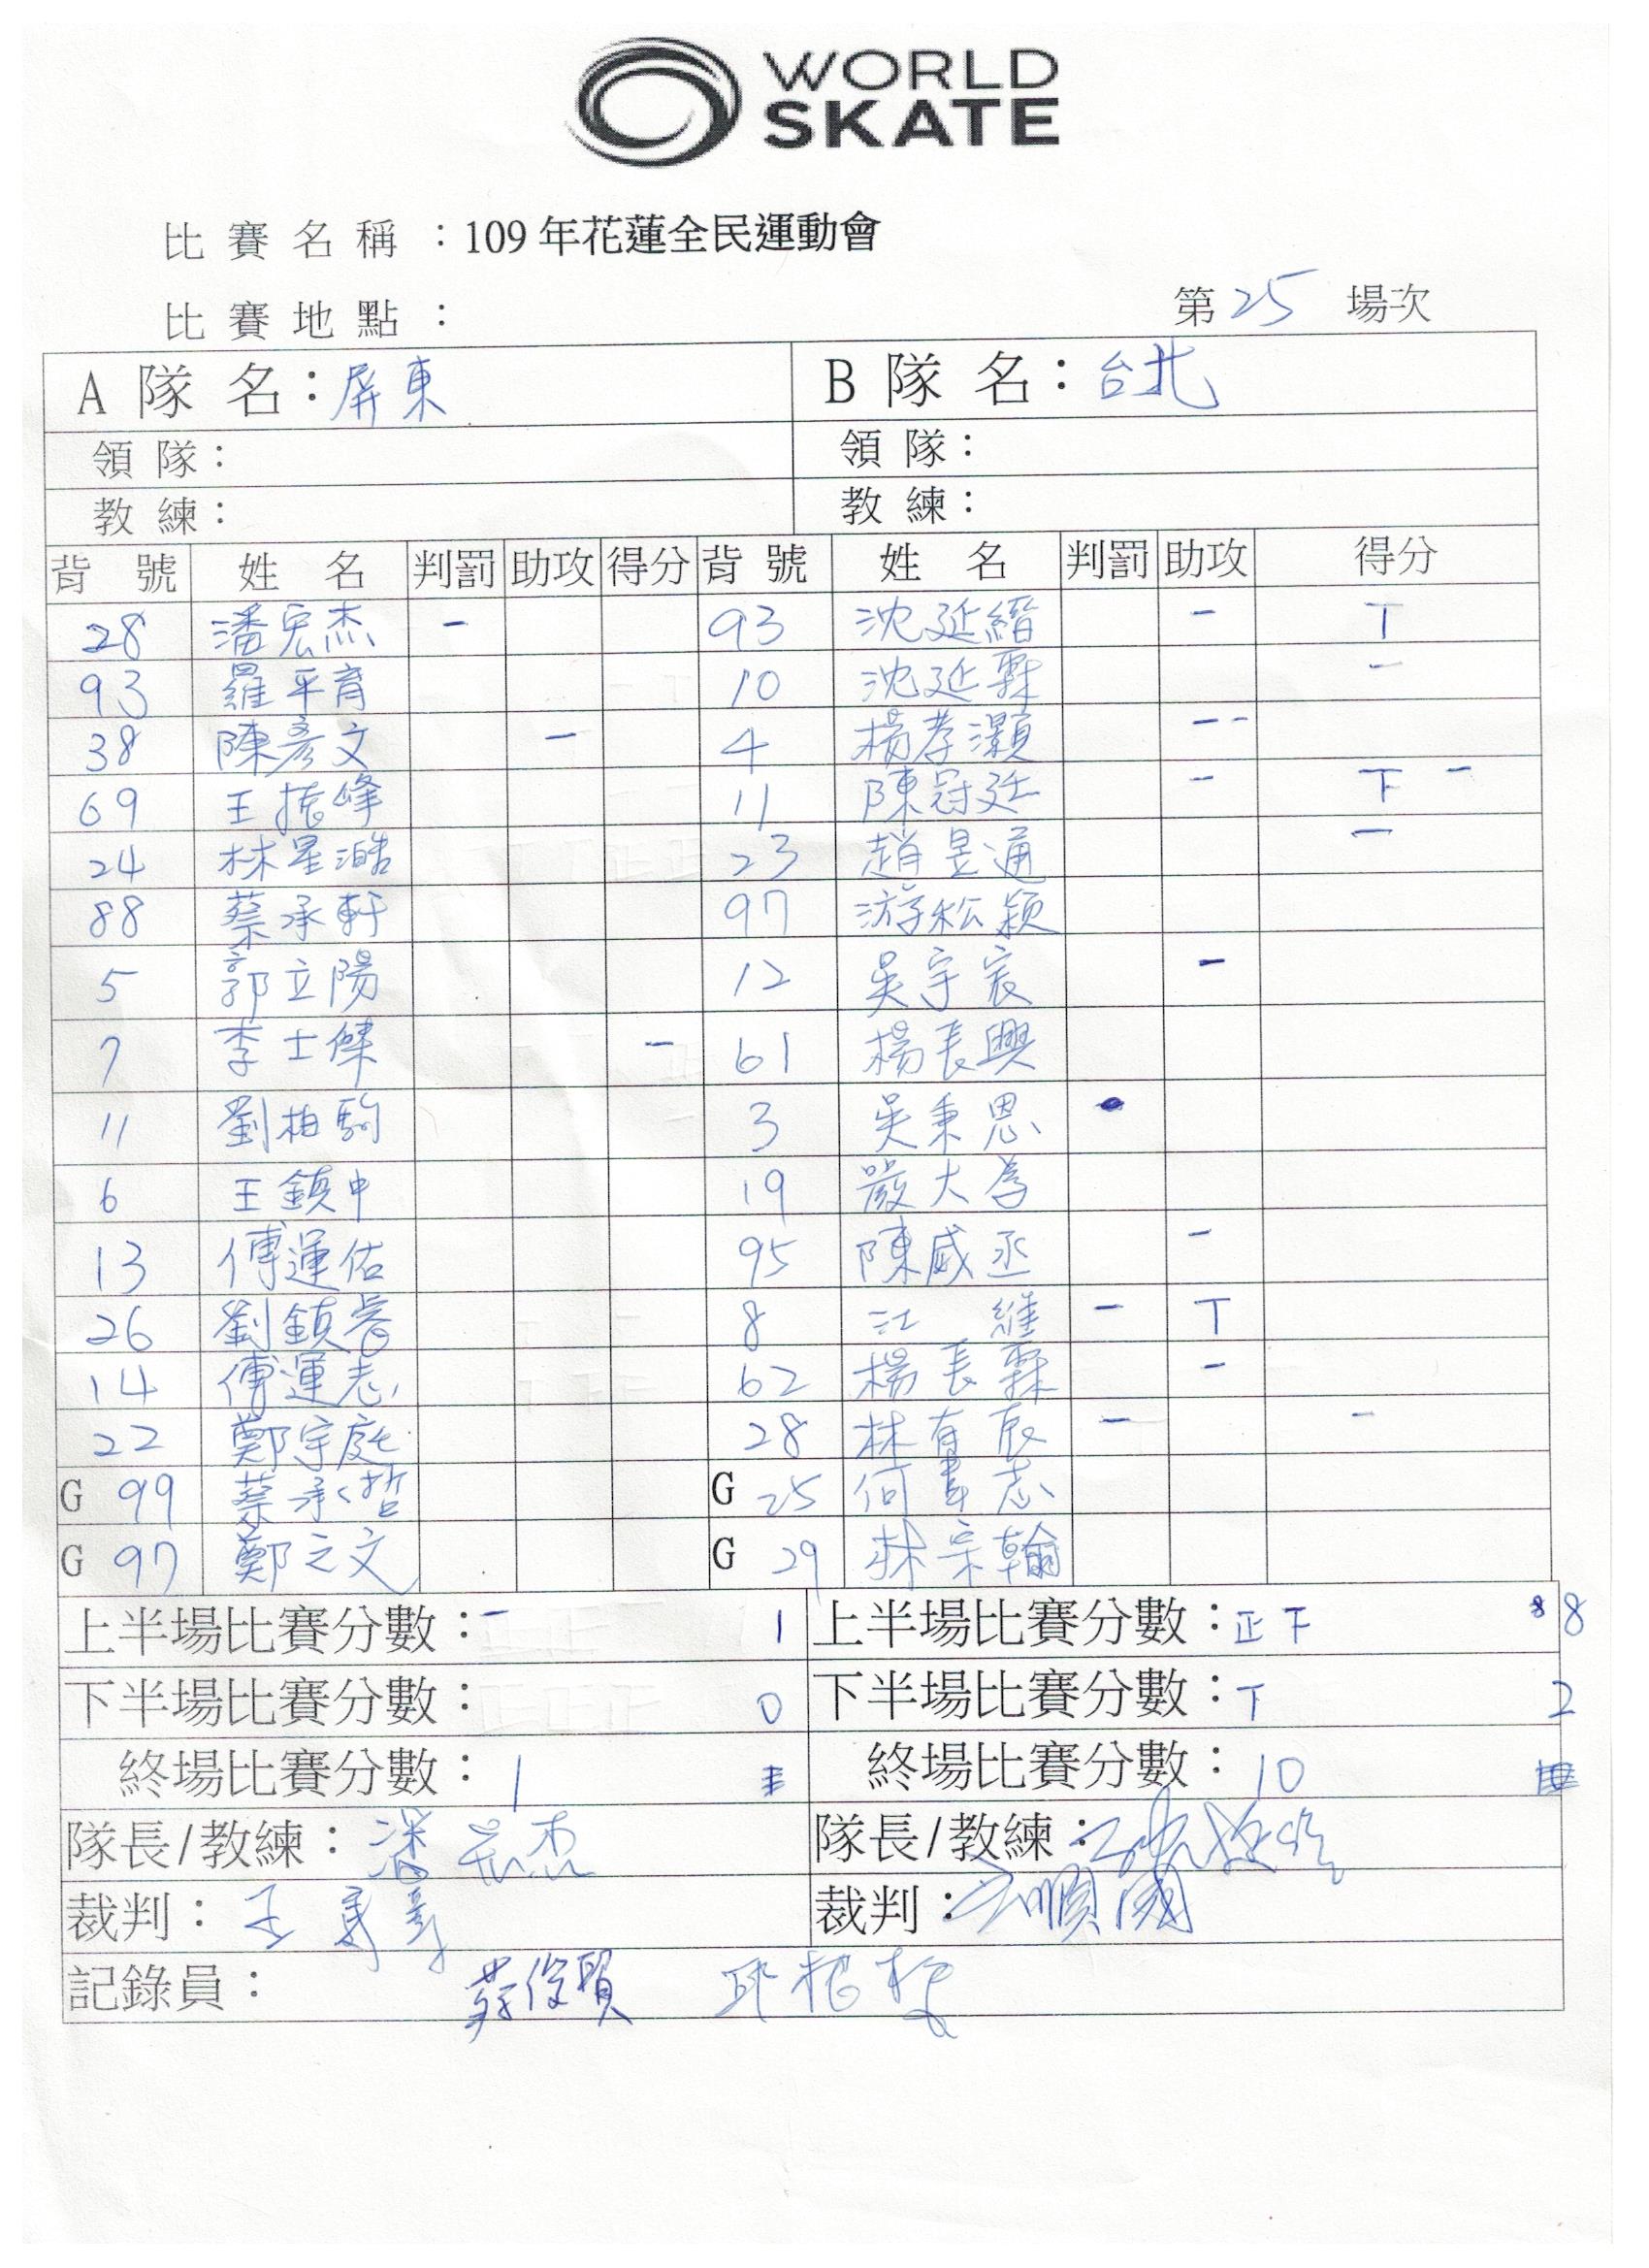 WORLD
SKATE
比賽名稱：109年花蓮全民運動會
比賽地點： 第25場次
A 隊 名：屏東 B 隊 名：台北
領 隊： 領 隊：
教 練： 教 練：
背 號 姓 名 判罰 助攻 得分 背 號 姓 名 判罰 助攻 得分
28 潘宏杰 一 93 沈延縉 一 T
93 羅平育 10 沈延霖 一
38 陳彥文 一 4 楊孝灝 一 一
69 王振峰 11 陳冠廷 一 下 一
24 林星澔 23 趙昱通 一
88 蔡承軒 97 游松穎
5 郭立陽 12 吳宇宸 一
7 李士傑 一 61 楊長興
11 劉柏駒 3 吳秉恩
6 王鎮中 19 嚴大為
13 傅運佑 95 陳威丞 一
26 劉鎮睿 8 江維 一 T
14 傅運志 62 楊長霖 一
22 鄭宇庭 28 林有辰 一 一
G 99 蔡承哲 G 25 何聿志
G 97 鄭之文 G 29 林宗翰
上半場比賽分數：一 1 上半場比賽分數：正下 8 8
下半場比賽分數： 0 下半場比賽分數：T 2
終場比賽分數：1 終場比賽分數：10
隊長/教練：潘宏杰 隊長/教練：
裁判：王 裁判：
記錄員：